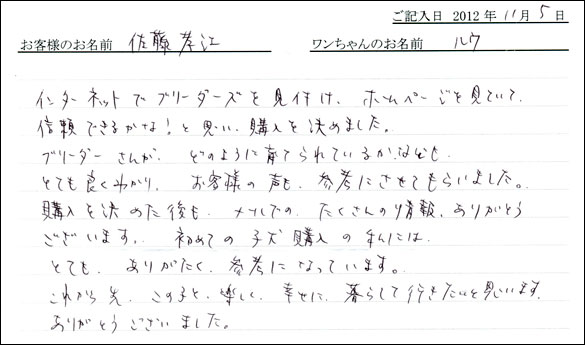 ご記入日 2012 年 11 月 5 日
お客様のお名前 佐藤孝江 ワンちゃんのお名前 ルウ
インターネットでブリーダーズを見付け、ホームページを見ていて、
信頼できるかな!と思い、購入を決めました。
ブリーダーさんが、どのように育てられているかなども、
とても良くわかり、お客様の声も、参考にさせてもらいました。
購入を決めた後も、メールでの、たくさんの情報、ありがとう
ございます。初めての子犬購入の私には、
とても、ありがたく、参考になっています。
これから先、この子と、楽しく、幸せに、暮らして行きたいと思います。
ありがとうございました。